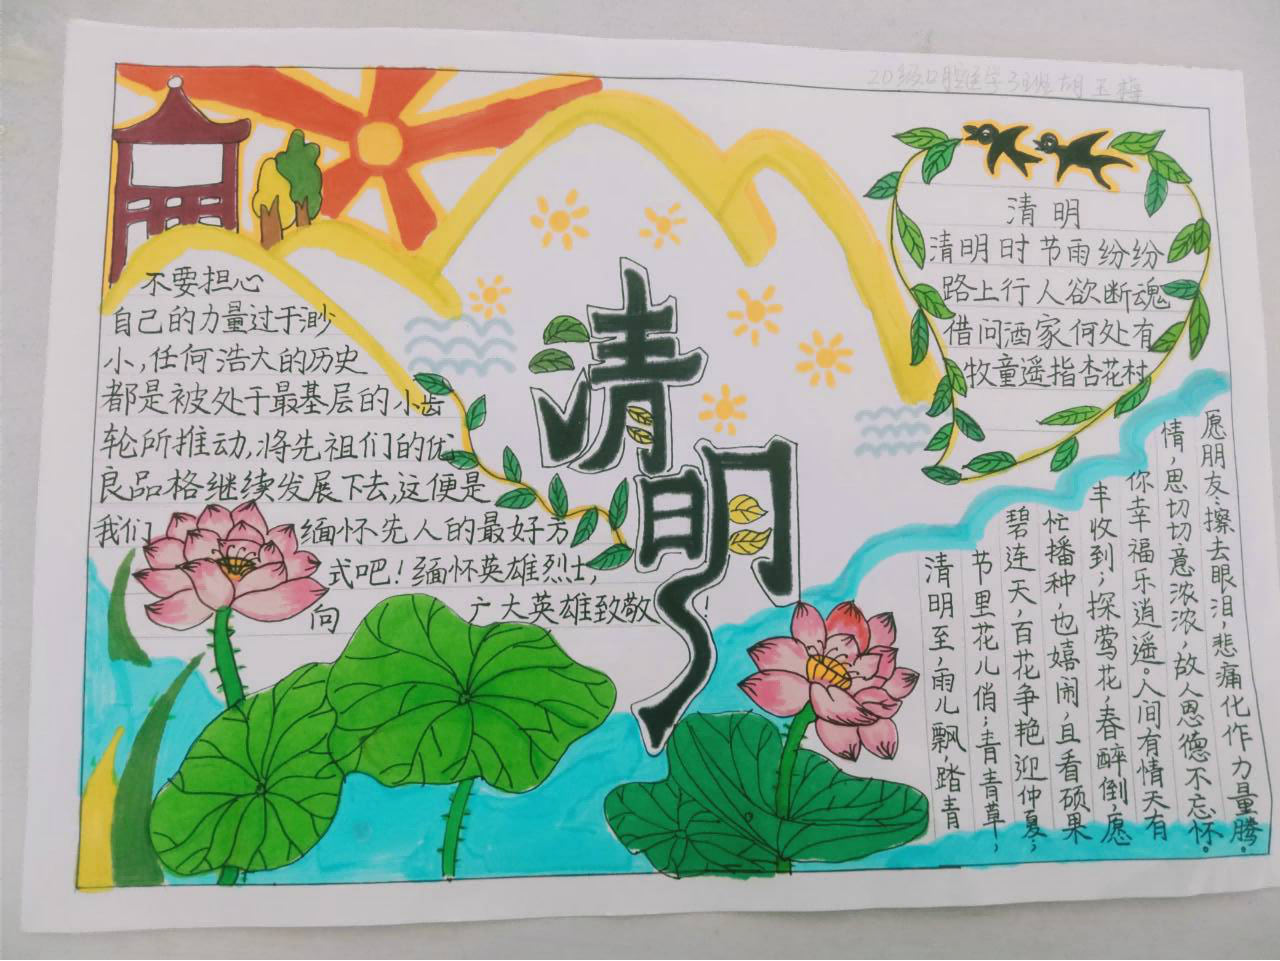 20级口腔医学3班胡玉梅
不要担心
自己的力量过于渺
小,任何浩大的历史
都是被处于最基层的小齿
轮所推动,将先祖们的优
良品格继续发展下去,这便是
我们缅怀先人的最好方
式吧!缅怀英雄烈士,
向广大英雄致敬!
清明
清明
清明时节雨纷纷
路上行人欲断魂
借问酒家何处有
牧童遥指杏花村
清明至,雨儿飘,踏青
节里花儿俏;青青草,
碧连天,百花争艳迎仲夏;
忙播种,也嬉闹,且看硕果
丰收到;探莺花,春醉倒,愿
你幸福乐逍遥。人间有情天有
情,思切切意浓浓,故人恩德不忘怀。
愿朋友:擦去眼泪,悲痛化作力量腾。